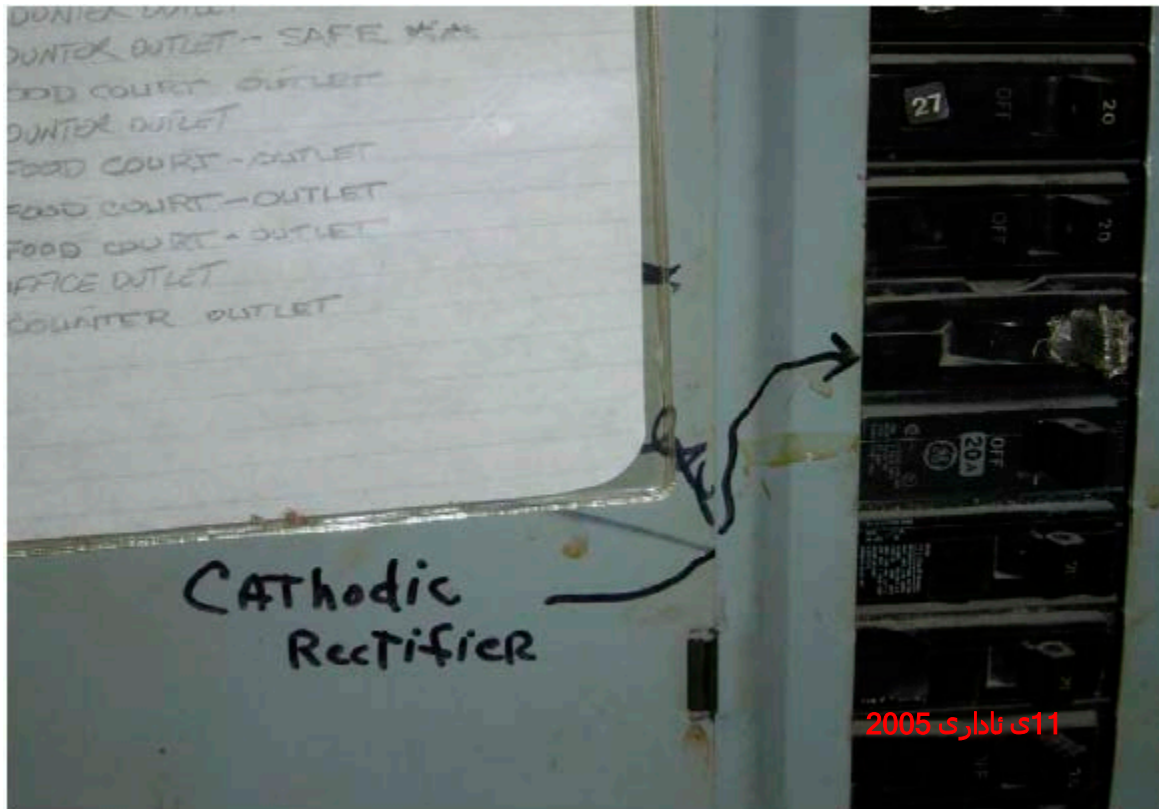 OUNTER OUTLET
OUNTER OUTLET - SAFE **
OOD COURT OUTLET
OUNTER OUTLET
FOOD COURT - OUTLET
FOOD COURT - OUTLET
FOOD COURT - OUTLET
OFFICE OUTLET
COUNTER OUTLET
CAThodic
RecTifieR
27
OFF
20
OFF
20
OFF
20A
11ی ئاداری 2005